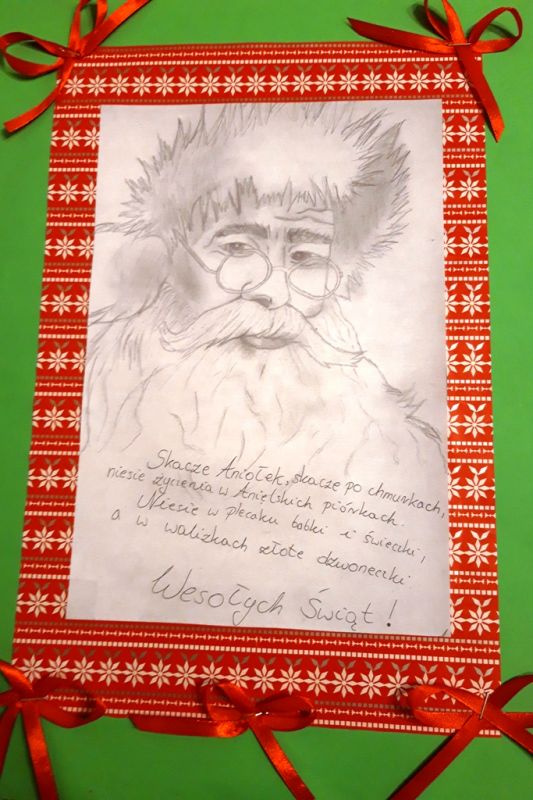 Skacze Aniołek, skacze po chmurkach,
niesie życzenia w Anielskich piórkach.
Niesie w plecaku babki i świeczki,
a w walizkach złote dzwoneczki
Wesołych Świąt !